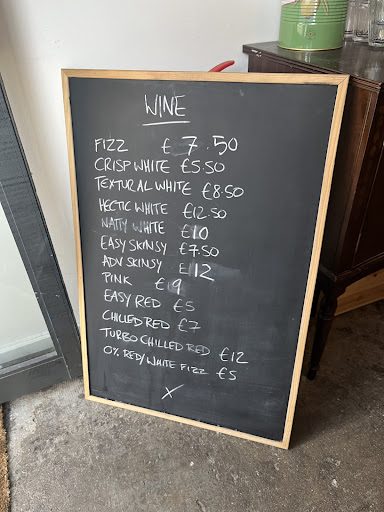 WINE
FIZZ £7.50
CRISP WHITE £5.50
TEXTURAL WHITE £8.50
HECTIC WHITE £12.50
NATTY WHITE £10
EASY SKINSY £7.50
ADV SKINSY £12
PINK £9
EASY RED £5
CHILLED RED £7
TURBO CHILLED RED £12
0% RED/WHITE FIZZ £5
X